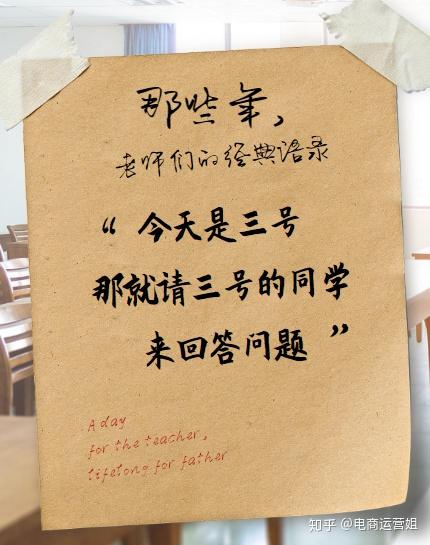 那些年，
老师们的经典语录
“今天是三号
那就请三号的同学
来回答问题”
A day
for the teacher,
lifetong for father
知乎 @电商运营姐